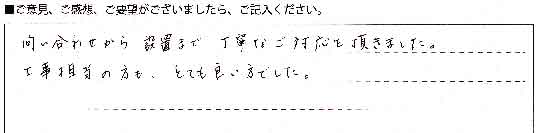 ■ご意見、ご感想、ご要望がございましたら、ご記入ください。
問い合わせから設置まで丁寧なご対応を頂きました。
工事担当の方も、とても良い方でした。